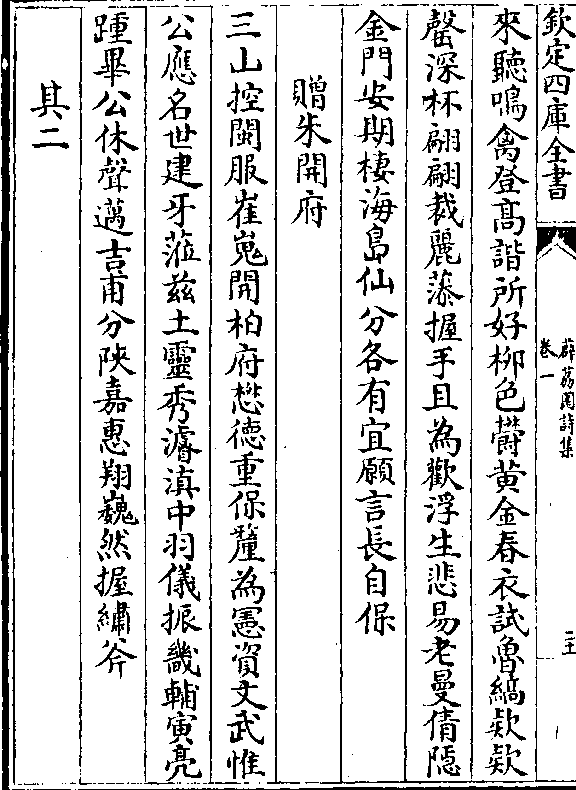 欽定四庫全書
薜荔園詩集
卷一
來聽鳴禽登高諧所好柳色欎黄金春衣試魯縞欵欵
罄深杯翩翩裁麗藻握手且為歡浮生悲易老曼倩隠
金門安期棲海島仙分各有宜願言長自保
贈朱開府
三山控閩服崔嵬開柏府懋德重保釐為憲資文武惟
公應名世建牙蒞兹土靈秀濬滇中羽儀振畿輔寅亮
踵畢公休聲邁吉甫分陜嘉惠翔巍然握繡斧
其二